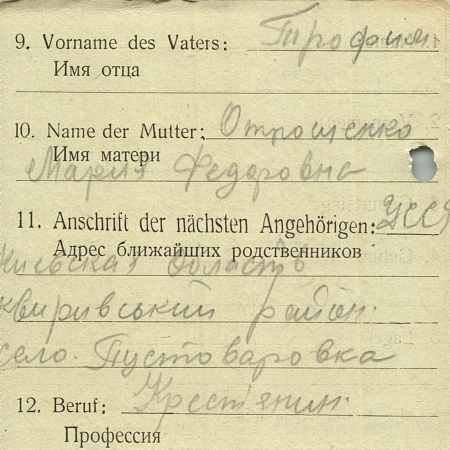 9. Vorname des Vaters: Трофим
Имя отца
10. Name der Mutter: Отрошенко
Имя матери
Мария Федоровна
11. Anschrift der nächsten Angehörigen: УССР
Адрес ближайших родственников
Киевская область
квиривський район.
село. Пустоваровка
12. Beruf: Крестянин.
Профессия